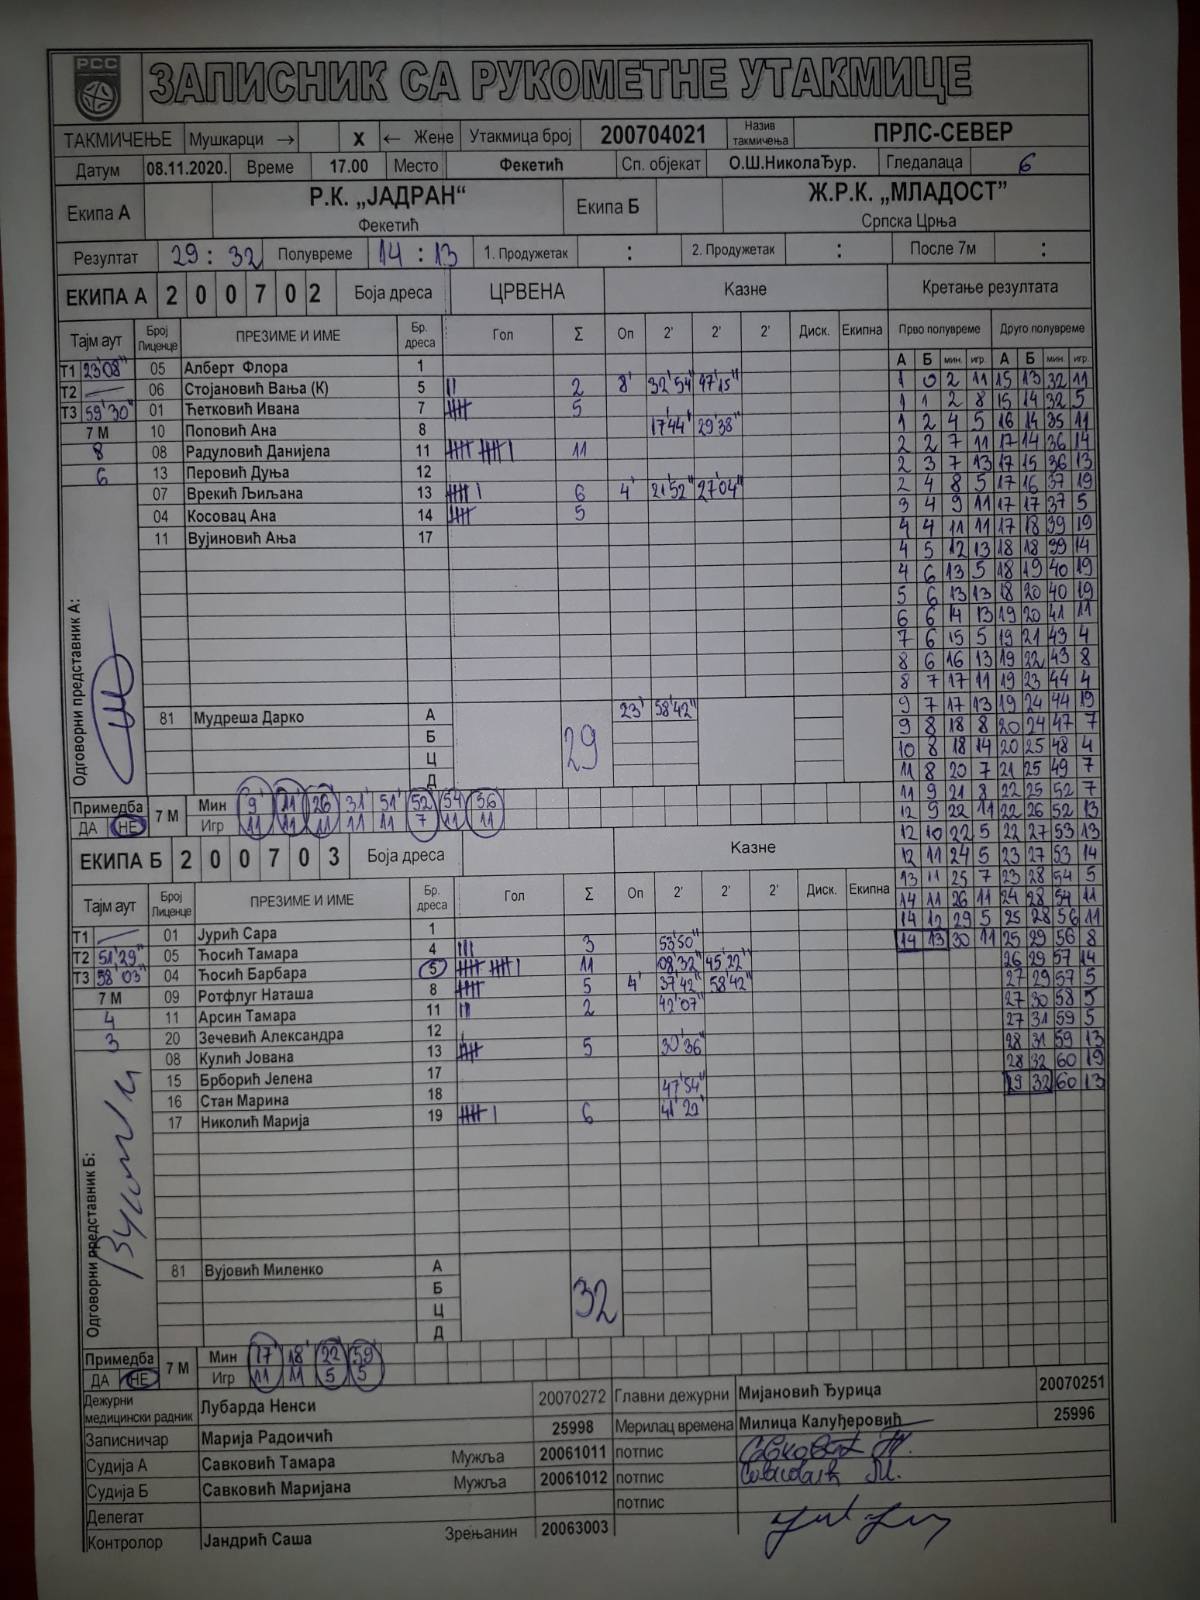 РСС
ЗАПИСНИК СА РУКОМЕТНЕ УТАКМИЦЕ
ТАКМИЧЕЊЕ Мушкарци → X ← Жене Утакмица број 200704021 Назив такмичења ПРЛС-СЕВЕР
Датум 08.11.2020. Време 17.00 Место Фекетић Сп. објекат О.Ш.НиколаЂур. Гледалаца 6
Екипа А Р.К. „ЈАДРАН“ Фекетић Екипа Б Ж.Р.К. „МЛАДОСТ” Српска Црња
Резултат 29 : 32 Полувреме 14 : 13 1. Продужетак : 2. Продужетак : После 7м :
ЕКИПА А 2 0 0 7 0 2 Боја дреса ЦРВЕНА Казне Кретање резултата
Тајм аут Број Лиценце ПРЕЗИМЕ И ИМЕ Бр. дреса Гол Σ Оп 2' 2' 2' Диск. Екипна Прво полувреме Друго полувреме
А Б мин. игр. А Б мин. игр.
Т1 23'08" 05 Алберт Флора 1
1 0 2 11 15 13 32 11
Т2 — 06 Стојановић Вања (К) 5 2 8' 32'54" 47'15"
1 1 2 8 15 14 32 5
Т3 59'30" 01 Ћетковић Ивана 7 5
1 2 4 5 16 14 35 11
7 М 10 Поповић Ана 8 17'44" 29'38"
2 2 7 11 17 14 36 14
8 08 Радуловић Данијела 11 11
2 3 7 13 17 15 36 13
6 13 Перовић Дуња 12
2 4 8 5 17 16 37 19
07 Врекић Љиљана 13 6 4' 21'52" 27'04"
3 4 9 11 17 17 37 5
04 Косовац Ана 14 5
4 4 11 11 17 18 39 19
11 Вујиновић Ања 17
4 5 12 13 18 18 39 14
4 6 13 5 18 19 40 19
5 6 13 13 18 20 40 19
6 6 14 13 19 20 41 11
7 6 15 5 19 21 43 4
8 6 16 13 19 22 43 8
8 7 17 11 19 23 44 4
9 7 17 13 19 24 44 19
9 8 18 8 20 24 47 7
10 8 18 14 20 25 48 4
11 8 20 7 21 25 49 7
11 9 21 8 22 25 52 7
12 9 22 11 22 26 52 13
12 10 22 5 22 27 53 13
12 11 24 5 23 27 53 14
13 11 25 7 23 28 54 5
14 11 26 11 24 28 54 11
14 12 29 5 25 28 56 11
14 13 30 11 25 29 56 8
26 29 57 14
27 29 57 5
27 30 58 5
27 31 59 5
28 31 59 13
28 32 60 19
29 32 60 13
Одговорни представник А:
81 Мудреша Дарко А 29 23' 58'42"
Б
Ц
Д
Примедба ДА НЕ 7 М Мин 9' 11' 26 31 51' 52 54 56
Игр 11 11 11 11 11 7 11 11
ЕКИПА Б 2 0 0 7 0 3 Боја дреса Казне
Тајм аут Број Лиценце ПРЕЗИМЕ И ИМЕ Бр. дреса Гол Σ Оп 2' 2' 2' Диск. Екипна
Т1 — 01 Јурић Сара 1
Т2 51'29" 05 Ћосић Тамара 4 3 53'50"
Т3 58'03" 04 Ћосић Барбара 5 11 08'32" 45'22"
7 М 09 Ротфлуг Наташа 8 5 4' 37'42" 58'42"
4 11 Арсин Тамара 11 2 42'07"
3 20 Зечевић Александра 12
08 Кулић Јована 13 5 30'36"
15 Брборић Јелена 17
16 Стан Марина 18 47'54"
17 Николић Марија 19 6 41'22'
Одговорни представник Б:
81 Вујовић Миленко А 32
Б
Ц
Д
Примедба ДА НЕ 7 М Мин 17' 18' 22 59
Игр 11 11 5 5
Дежурни медицински радник Лубарда Ненси 20070272 Главни дежурни Мијановић Ђурица 20070251
Записничар Марија Радоичић 25998 Мерилац времена Милица Калуђеровић 25996
Судија А Савковић Тамара Мужља 20061011 потпис
Судија Б Савковић Маријана Мужља 20061012 потпис
Делегат потпис
Контролор Јандрић Саша Зрењанин 20063003